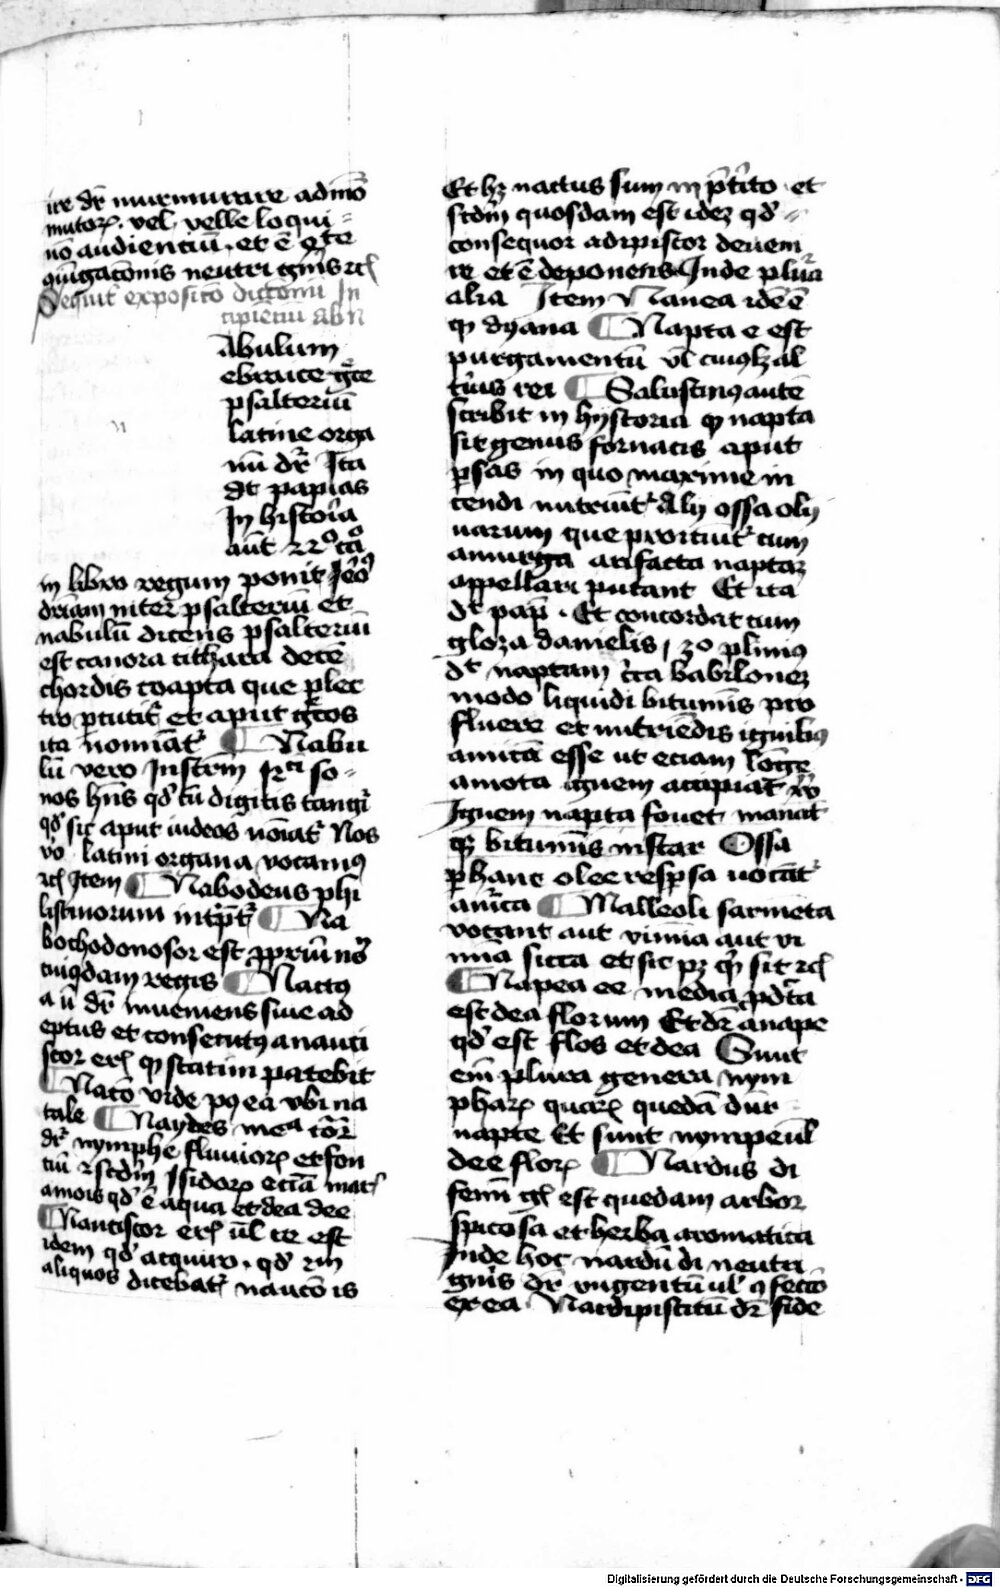 ire dr̄ murmurare ad mō
mutoꝝ. vel velle loqui
nō audientiū. et ē gͥte
Sequit᷑ exposicō dictionū In
cipiētiū ab N
Abulum
ebraice gͣce
psalteriū
latine orga
nū dr̄ Ita
dt papias
In historia
aūt
in libro regum ponit
driam inter psalteriū et
nabulū dicens psalteriū
est canora cithara decē
chordis coapta que plec
tro ꝑcutit᷑ et aput gͣcos
ita nomiat᷑ ¶ Nabu
lū vero Instrm̄ so
nos hn̄s qd̓ cū digitis tangit᷑
qd̓ sic aput iudeos noīat᷑ Nos
v̓o latini organa vocamꝰ
Item ¶ Nabodeus phi
listinorum int̓pt᷑ ¶ Na
bochodonosor est ꝓpriū
cuiꝰdam regis ¶ Nactꝰ
a ū dr̄ inueniens siue ad
eptus et consecutꝰ a nanci
scor eriꝭ ꝙ statim patebit
¶ Natō vide ꝑꝰ ea vbi na
tale ¶ Naydes
dr̄ nymphe fluuioꝝ et fon
tiū scdm̄ Isidoꝝ eciā
qd̓ ē aqua et dea dee
¶ Nanciscor eriꝭ ul̄ re est
idem qd̓ acquiro. qd̓
aliquos dicebat᷑ nancō is
Et hꝫ nactus sum in p̄tito et
scdm̄ quosdam est ideꝫ qd̓
consequor adipiscor deuem
re et ē deponens Inde plura
alia Item Nanea idē ē
ꝙ dyana ¶ Napta e est
purgamentū ul̄ cuiꝰlꝫ al
t̓ius rei ¶ Salustinꝰ autē
scribit in hystoria ꝙ napta
sit genus fornacis aput
ꝑsas in quo maxime in
cendi nutriūt᷑ Alij ossa oliu
uarum que proiciūt᷑ cum
amurga arifacta naptaꝫ
appellari putant Et ita
dt pap̄. Et concordat cum
gloza danielis, plinius
dt naptam c̓ca babiloneꝫ
modo liquidi bituminis pro
fluere et nutriendis ignibꝰ
amicā esse ut eciam longe
amota ignem accipiat
Ignem napta fouet manat
qͣꝫ bituminis instar Ossa
ꝑ hanc olee respersa uocat᷑
¶ Malleoli sarmēta
vocant aut vimīa aut vi
mīa sicca et sic pꝫ qͥd sit
¶ Napea ee media ꝓducta
est dea florum Et dr̄ a nape
qd̓ est flos et dea Sunt
em̄ plura genera nym
pharꝝ quarꝝ quedā dn̄r
napte Et sunt nympe ul̄
dee floꝝ ¶ Nardus di
femī gͣ est quedam arbor
spicosa et herba aromatica
Inde hoc nardū di neutri
gn̄is dr̄ vngentū ul̄ ꝯfectō
ex ea. Nardipisticū dr̄ fide
Digitalisierung gefördert durch die Deutsche Forschungsgemeinschaft - DFG